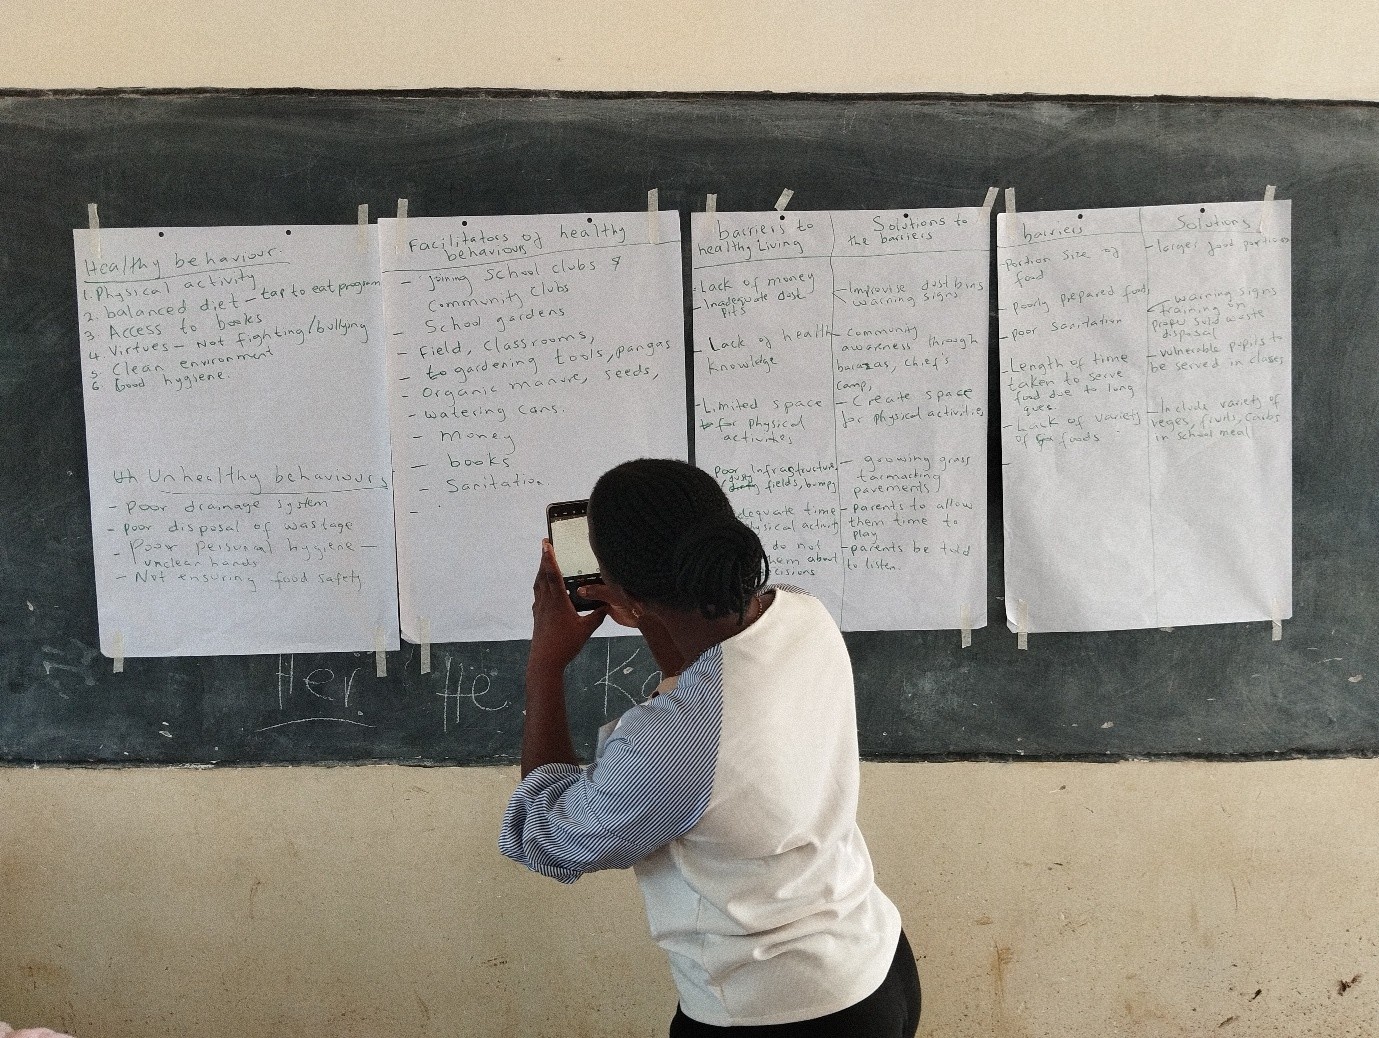 Healthy behaviour
1. Physical activity
2. balanced diet - tap to eat program
3. Access to books
4. Virtues - Not fighting/bullying
5. Clean environment
6. Good hygiene.
Unhealthy behaviours
- Poor drainage system
- poor disposal of wastage
- Poor personal hygiene -
unclean hands
- Not ensuring food safety
Facilitators of healthy
behaviours
- joining School clubs &
Community clubs
- School gardens
- Field, classrooms,
- gardening tools, pangas
- Organic manure, seeds,
- watering cans.
- money
- books
- Sanitation
-
barriers to
healthy Living
- Lack of money
- Inadequate dust
pits
- Lack of health
knowledge
- Limited space
for physical
activities
poor Infrastructure
dusty fields, bumpy
adequate time
physical activity
do not
them about
decisions
Solutions to
the barriers
- Improvise dust bins
warning signs
- community
awareness through
barazas, chief's
camp,
- Create space
for physical activities
- growing grass
tarmacking
pavements
- parents to allow
them time to
play
- parents be told
to listen.
barriers
- Portion size of
food
- poorly prepared food
- poor sanitation
- Length of time
taken to serve
food due to long
ques.
- Lack of variety
of foods
-
Solutions
- larger food portions
- warning signs
training on
proper solid waste
disposal
- vulnerable pupils to
be served in classes
- Include variety of
veges, fruits, carbs
in school meal
Her He Ka